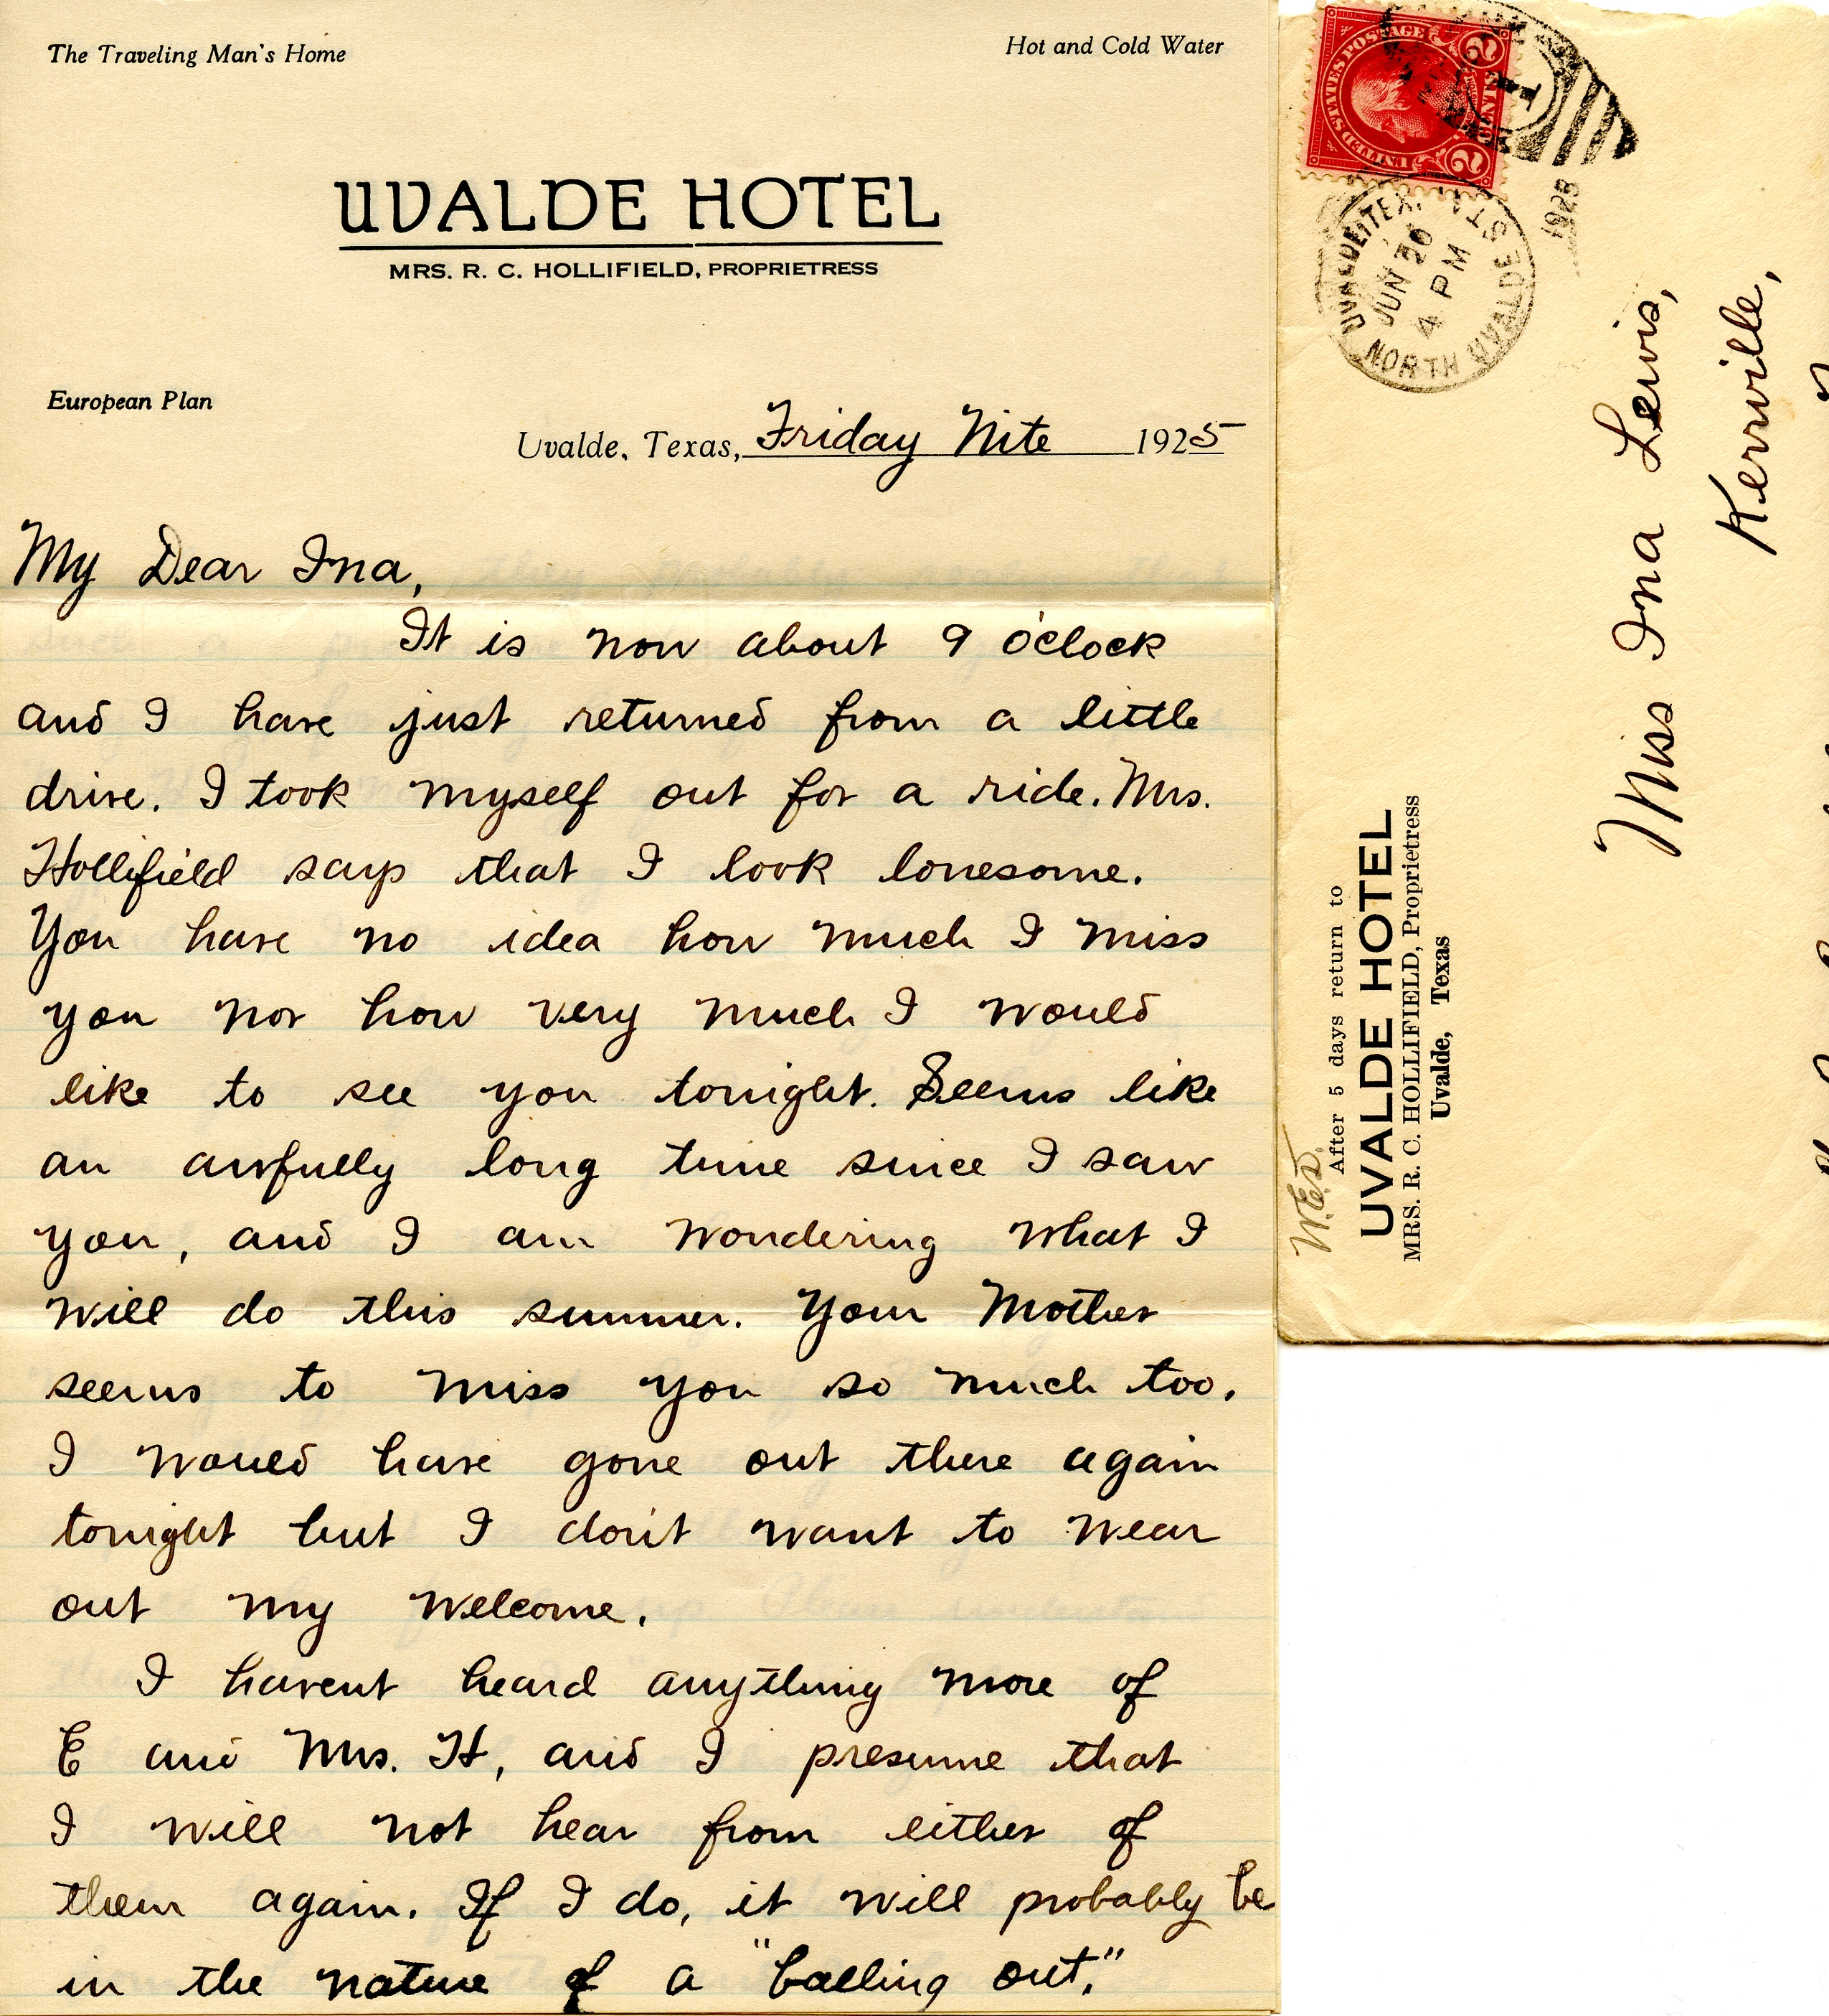 The Traveling Man's Home
Hot and Cold Water
UVALDE HOTEL
MRS. R. C. HOLLIFIELD, PROPRIETRESS
European Plan
Uvalde, Texas, Friday Nite 1925
My Dear Ina,
It is now about 9 o'clock
and I have just returned from a little
drive. I took myself out for a ride. Mrs.
Hollifield says that I look lonesome.
You have no idea how much I miss
you nor how very much I would
like to see you tonight. Seems like
an awfully long time since I saw
you, and I am wondering what I
will do this summer. Your Mother
seems to miss you so much too.
I would have gone out there again
tonight but I don't want to wear
out my welcome.
I havent heard anything more of
E and Mrs. H, and I presume that
I will not hear from either of
them again. If I do, it will probably be
in the nature of a "balling out."
UNITED STATES POSTAGE
2 CENTS 2
1
1925
UVALDE, TEX.
JUN 20
4 PM
NORTH UVALDE ST
Miss Ina Lewis,
Kerrville,
W.E.D.
After 5 days return to
UVALDE HOTEL
MRS. R. C. HOLLIFIELD, Proprietress
Uvalde, Texas